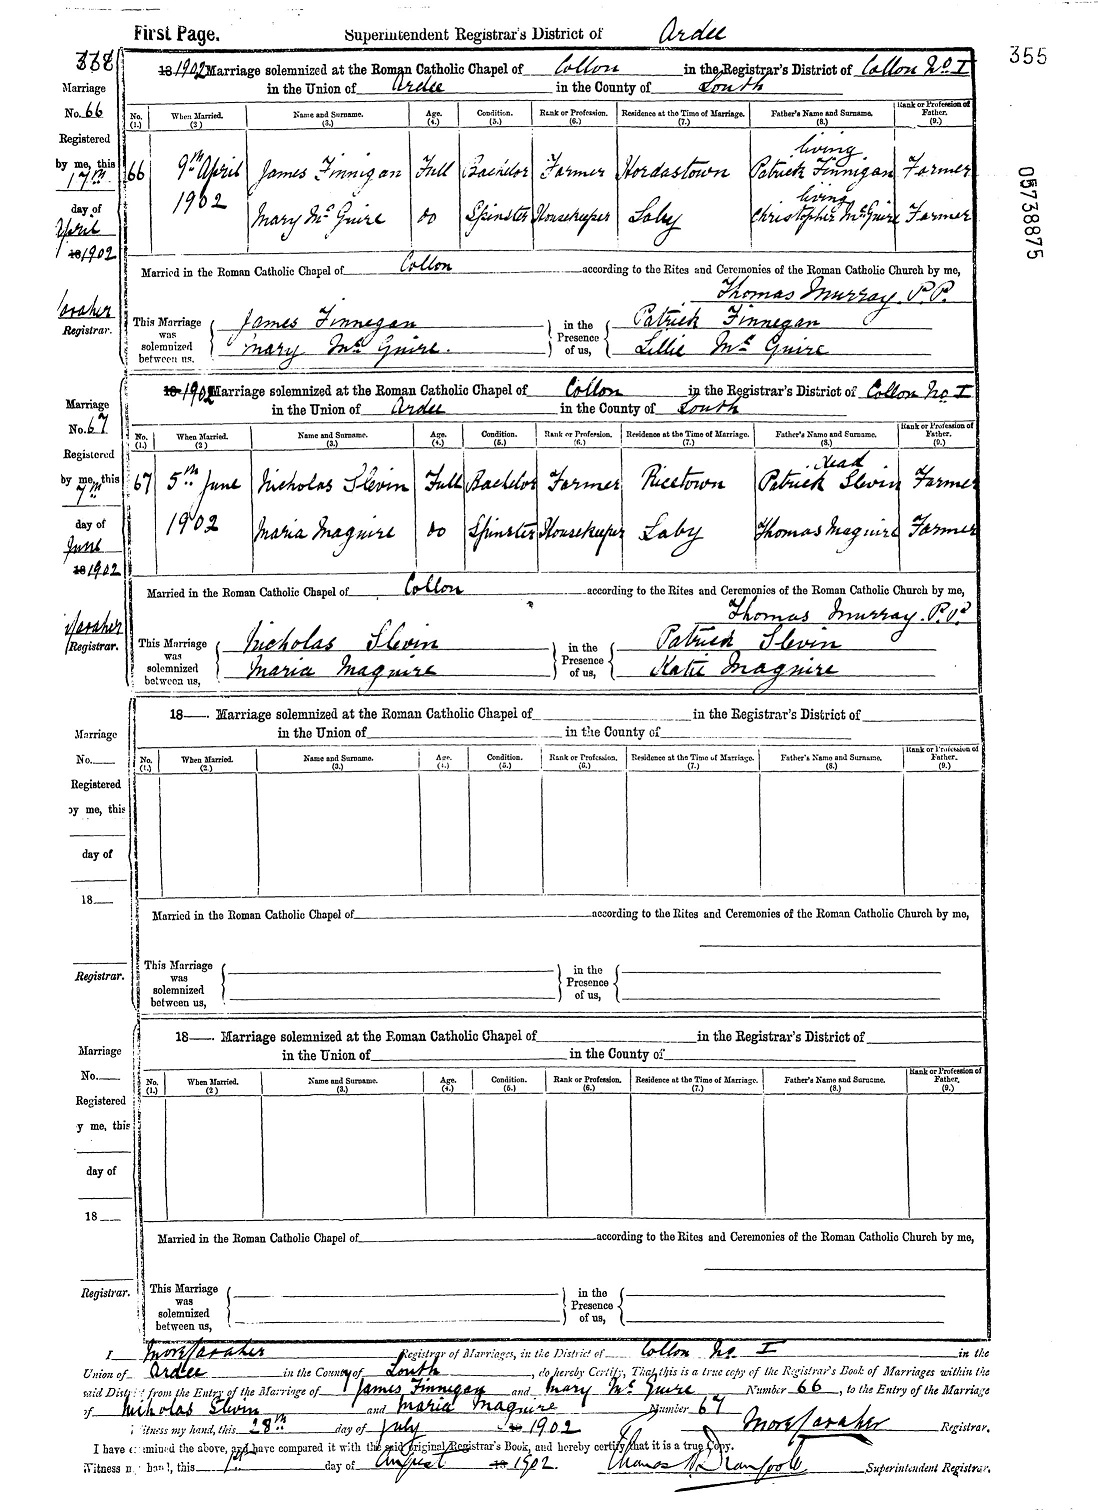 First Page. Superintendent Registrar's District of Ardee
338 355
18 1902 Marriage solemnized at the Roman Catholic Chapel of Collon in the Registrar's District of Collon No. I
in the Union of Ardee in the County of Louth
Marriage
No. 66
Registered
by me, this
17th
day of
April
18 1902
Registrar.
No. (1.) When Married. (2) Name and Surname. (3.) Age. (4.) Condition. (5.) Rank or Profession. (6.) Residence at the Time of Marriage. (7.) Father's Name and Surname. (8.) Rank or Profession of Father. (9.)
living
66 9th April James Finnigan Full Bachelor Farmer Hordastown Patrick Finnigan Farmer
living
1902 Mary McGuire do Spinster Housekeeper Laby Christopher McGuire Farmer
Married in the Roman Catholic Chapel of Collon according to the Rites and Ceremonies of the Roman Catholic Church by me,
Thomas Murray. P.P.
This Marriage was solemnized between us, James Finnegan in the Presence of us, Patrick Finnegan
Mary McGuire. Lillie McGuire
05738875
18 1902 Marriage solemnized at the Roman Catholic Chapel of Collon in the Registrar's District of Collon No. I
in the Union of Ardee in the County of Louth
Marriage
No. 67
Registered
by me, this
7th
day of
June
18 1902
Registrar.
No. (1.) When Married. (2) Name and Surname. (3.) Age. (4.) Condition. (5.) Rank or Profession. (6.) Residence at the Time of Marriage. (7.) Father's Name and Surname. (8.) Rank or Profession of Father. (9.)
dead
67 5th June Nicholas Slevin Full Bachelor Farmer Ricetown Patrick Slevin Farmer
1902 Maria Maguire do Spinster Housekeeper Laby Thomas Maguire Farmer
Married in the Roman Catholic Chapel of Collon according to the Rites and Ceremonies of the Roman Catholic Church by me,
Thomas Murray. P.P.
This Marriage was solemnized between us, Nicholas Slevin in the Presence of us, Patrick Slevin
Maria Maguire Katie Maguire
18 Marriage solemnized at the Roman Catholic Chapel of in the Registrar's District of
in the Union of in the County of
Marriage
No.
Registered
by me, this
day of
18
Registrar.
No. (1.) When Married. (2.) Name and Surname. (3.) Age. (4.) Condition. (5.) Rank or Profession. (6.) Residence at the Time of Marriage. (7.) Father's Name and Surname. (8.) Rank or Profession of Father. (9.)
Married in the Roman Catholic Chapel of according to the Rites and Ceremonies of the Roman Catholic Church by me,
This Marriage was solemnized between us, in the Presence of us,
18 Marriage solemnized at the Roman Catholic Chapel of in the Registrar's District of
in the Union of in the County of
Marriage
No.
Registered
y me, this
day of
18
Registrar.
No. (1.) When Married. (2) Name and Surname. (3.) Age. (4.) Condition. (5.) Rank or Profession. (6.) Residence at the Time of Marriage. (7.) Father's Name and Surname. (8.) Rank or Profession of Father. (9.)
Married in the Roman Catholic Chapel of according to the Rites and Ceremonies of the Roman Catholic Church by me,
This Marriage was solemnized between us, in the Presence of us,
I Registrar of Marriages, in the District of Collon No. I in the
Union of Ardee in the County of Louth, do hereby Certify, That this is a true copy of the Registrar's Book of Marriages within the
said District from the Entry of the Marriage of James Finnegan and Mary McGuire Number 66, to the Entry of the Marriage
of Nicholas Slevin and Maria Maguire Number 67
Witness my hand, this 28th day of July 18 1902 Registrar.
I have examined the above, and have compared it with the said original Registrar's Book, and hereby certify that it is a true Copy.
Witness my hand, this 1st day of August 18 1902. Superintendent Registrar.